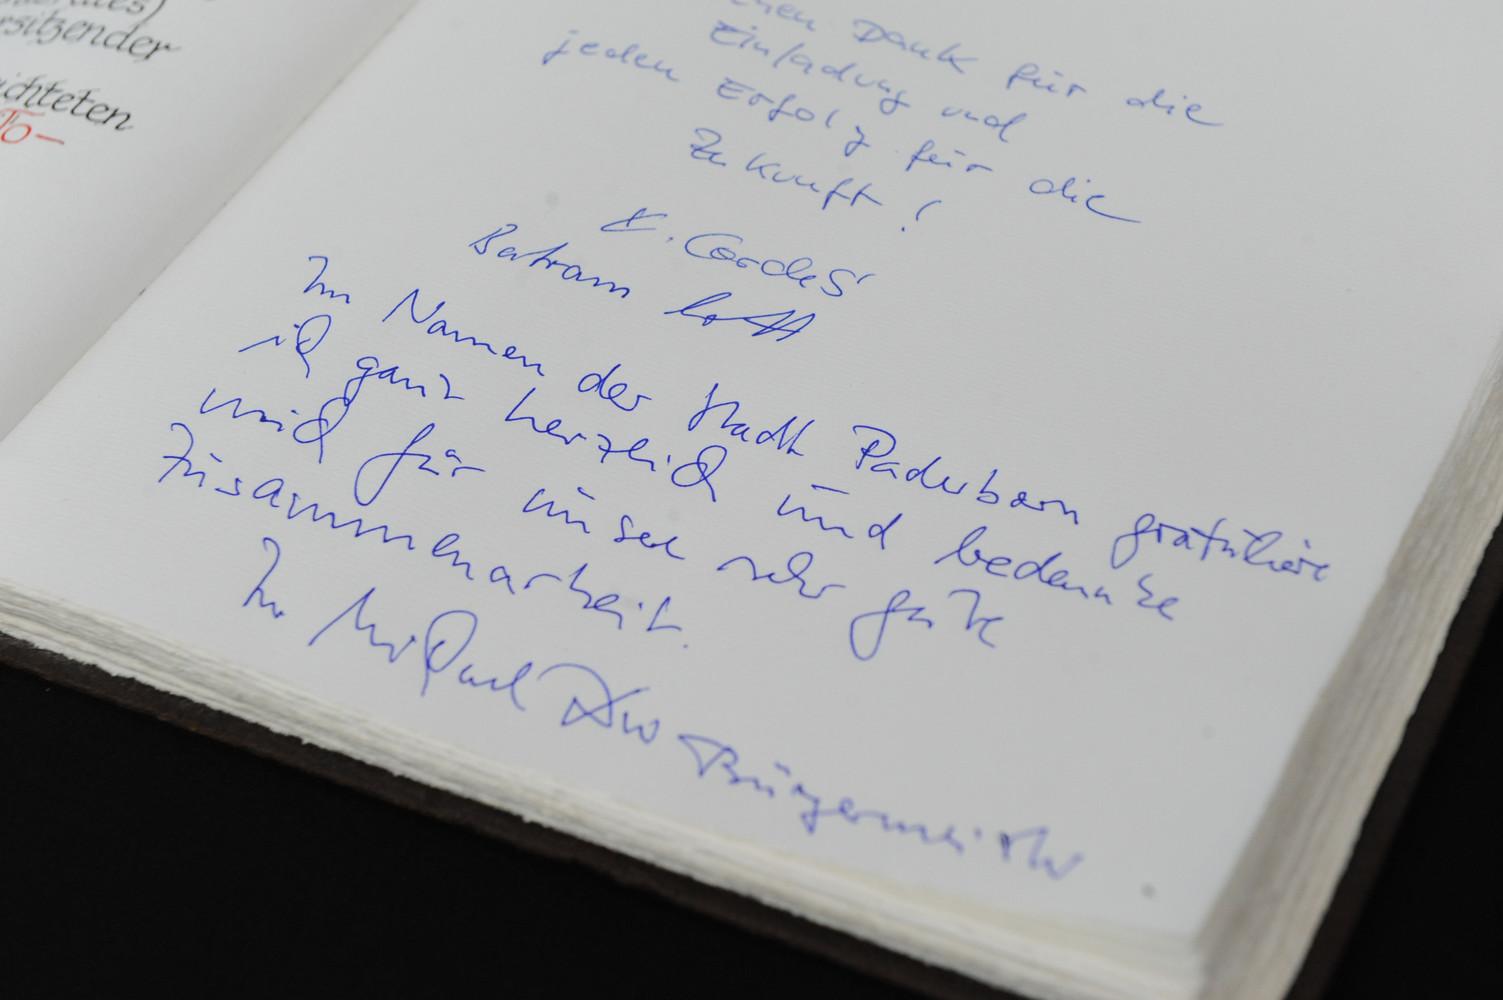 sitzender
ichteten
To-
Dank für die
Einladung und
jeden Erfolg für die
Zukunft!
K. Cordes
Bertram
Im Namen der Stadt Paderborn gratuliere
ich ganz herzlich und bedanke
mich für unsere sehr gute
Zusammenarbeit.
Ihr Michael Bürgermeister